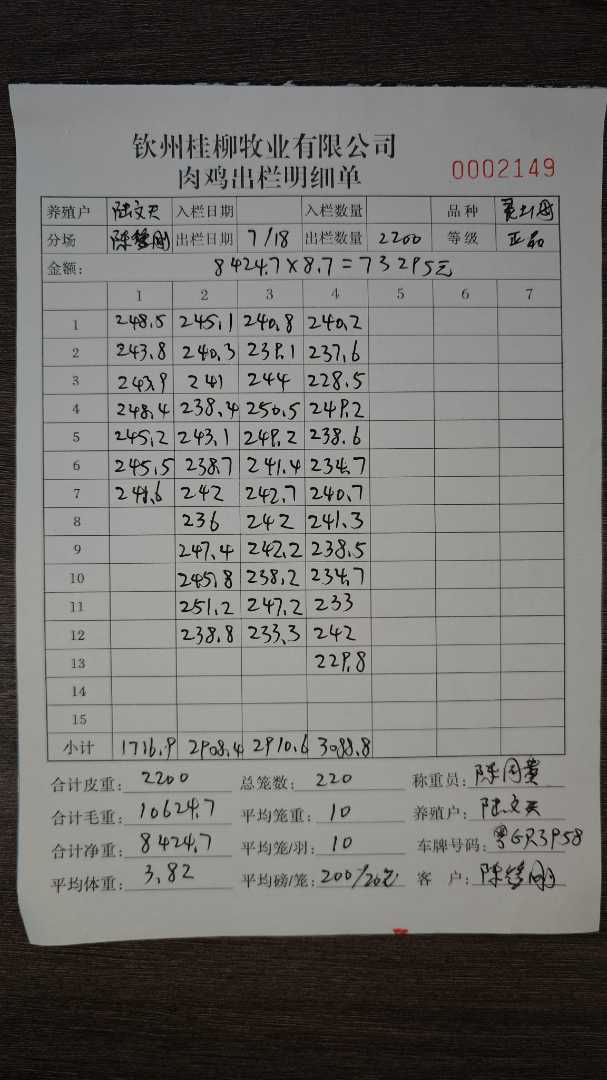 钦州桂柳牧业有限公司
肉鸡出栏明细单 0002149
养殖户 陆文天 入栏日期 入栏数量 品种
分场 出栏日期 7/18 出栏数量 2200 等级 正品
金额: 8424.7×8.7=73295元
1 2 3 4 5 6 7
1 248.5 245.1 240.8 240.2
2 243.8 240.3 239.1 237.6
3 243.9 241 244 228.5
4 248.4 238.4 250.5 249.2
5 245.2 243.1 249.2 238.6
6 245.5 238.7 241.4 234.7
7 241.6 242 242.7 240.7
8 236 242 241.3
9 247.4 242.2 238.5
10 245.8 238.2 234.7
11 251.2 247.2 233
12 238.8 233.3 242
13 229.8
14
15
小计 1716.9 2908.4 2910.6 3088.8
合计皮重: 2200 总笼数: 220 称重员: 陈周黄
合计毛重: 10624.7 平均笼重: 10 养殖户: 陆文天
合计净重: 8424.7 平均笼/羽: 10 车牌号码: 粤GR3P58
平均体重: 3.82 平均磅/笼: 200/20笼 客户: